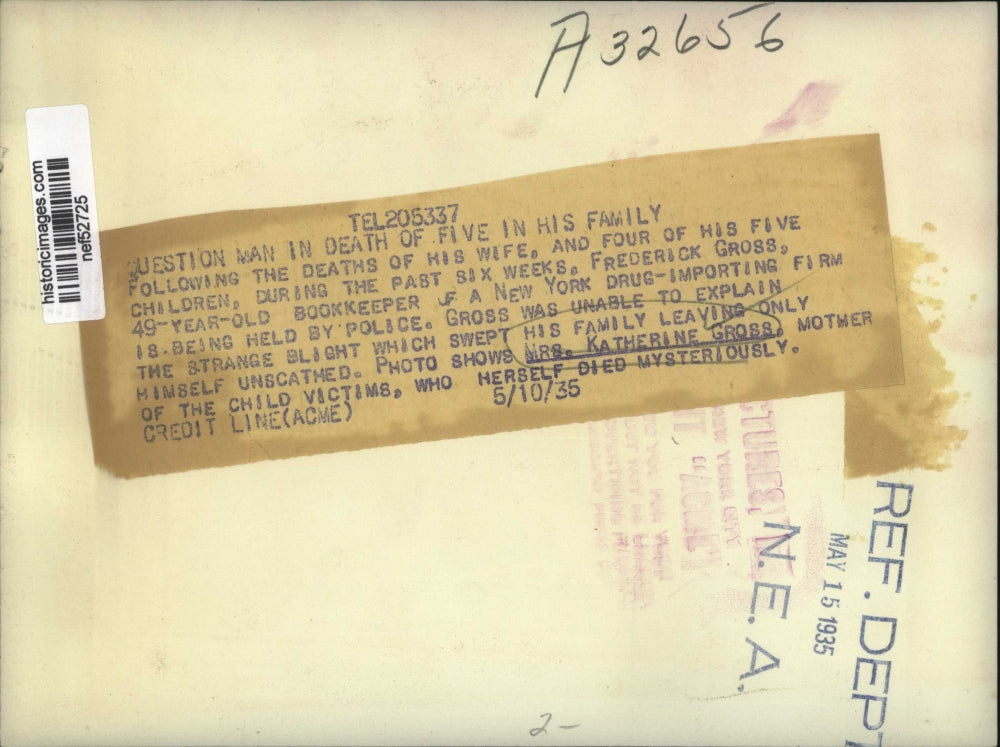 A32656
historicimages.com
nef52725
TEL205337
QUESTION MAN IN DEATH OF FIVE IN HIS FAMILY
FOLLOWING THE DEATHS OF HIS WIFE, AND FOUR OF HIS FIVE
CHILDREN, DURING THE PAST SIX WEEKS, FREDERICK GROSS,
49-YEAR-OLD BOOKKEEPER OF A NEW YORK DRUG-IMPORTING FIRM
IS BEING HELD BY POLICE. GROSS WAS UNABLE TO EXPLAIN
THE STRANGE BLIGHT WHICH SWEPT HIS FAMILY LEAVING ONLY
HIMSELF UNSCATHED. PHOTO SHOWS MRS. KATHERINE GROSS, MOTHER
OF THE CHILD VICTIMS, WHO HERSELF DIED MYSTERIOUSLY.
CREDIT LINE(ACME) 5/10/35
NEW YORK CITY
"ACME"
N.E.A.
MAY 15 1935
REF. DEPT
2-